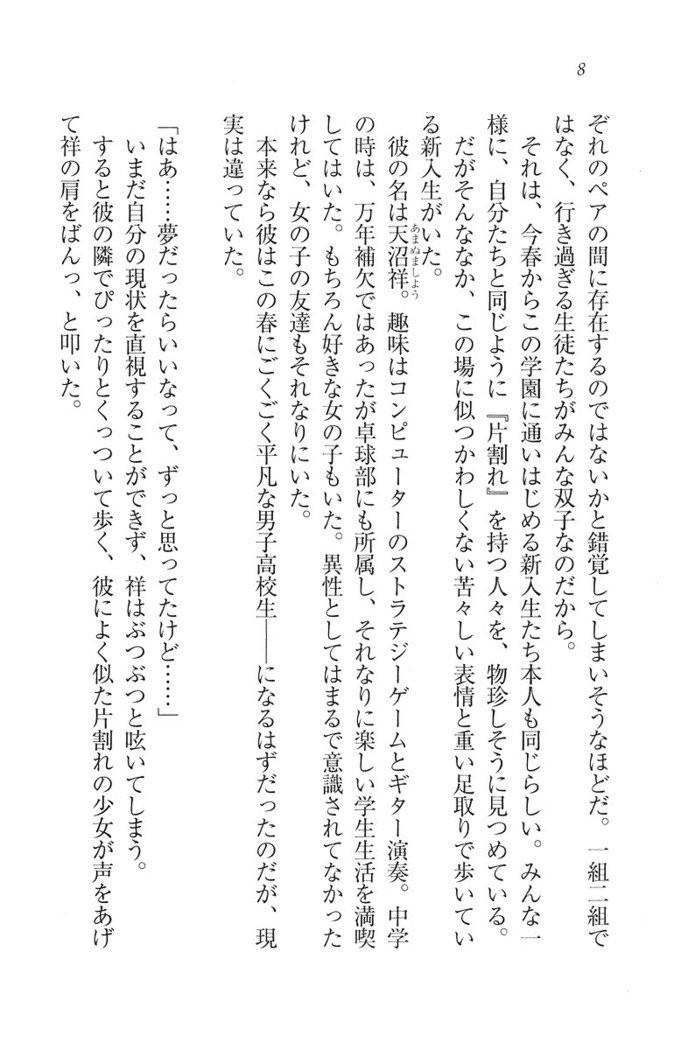 8
ぞれのペアの間に存在するのではないかと錯覚してしまいそうなほどだ。一組二組で
はなく、行き過ぎる生徒たちがみんな双子なのだから。
それは、今春からこの学園に通いはじめる新入生たち本人も同じらしい。みんな一
様に、自分たちと同じように『片割れ』を持つ人々を、物珍しそうに見つめている。
だがそんななか、この場に似つかわしくない苦々しい表情と重い足取りで歩いてい
る新入生がいた。
彼の名は天沼祥。趣味はコンピューターのストラテジーゲームとギター演奏。中学
あまぬましよう
の時は、万年補欠ではあったが卓球部にも所属し、それなりに楽しい学生生活を満喫
してはいた。もちろん好きな女の子もいた。異性としてはまるで意識されてなかった
けれど、女の子の友達もそれなりにいた。
本来なら彼はこの春にごくごく平凡な男子高校生――になるはずだったのだが、現
実は違っていた。
「はあ……夢だったらいいなって、ずっと思ってたけど……」
いまだ自分の現状を直視することができず、祥はぶつぶつと呟いてしまう。
すると彼の隣でぴったりとくっついて歩く、彼によく似た片割れの少女が声をあげ
て祥の肩をばんっ、と叩いた。